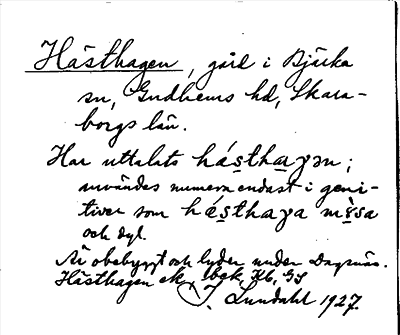 Hästhagen, gård i Bjärka
sn, Gudhems hd, Skara-
borgs län.
Har uttalats hás̱tha̱γən;
användes numera endast i geni-
tiver som hás̱thaγa mè̱sa
och dyl.
Är obebyggt och lyder under Dagsnäs.
Hästhagen ek, Jbok, Kb, GS
J. Lundahl 1927.